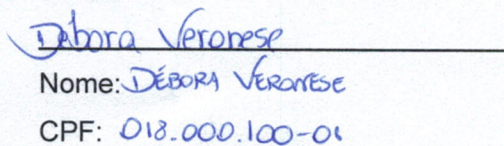 Débora Veronese
Nome: DÉBORA VERONESE
CPF: 018.000.100-01